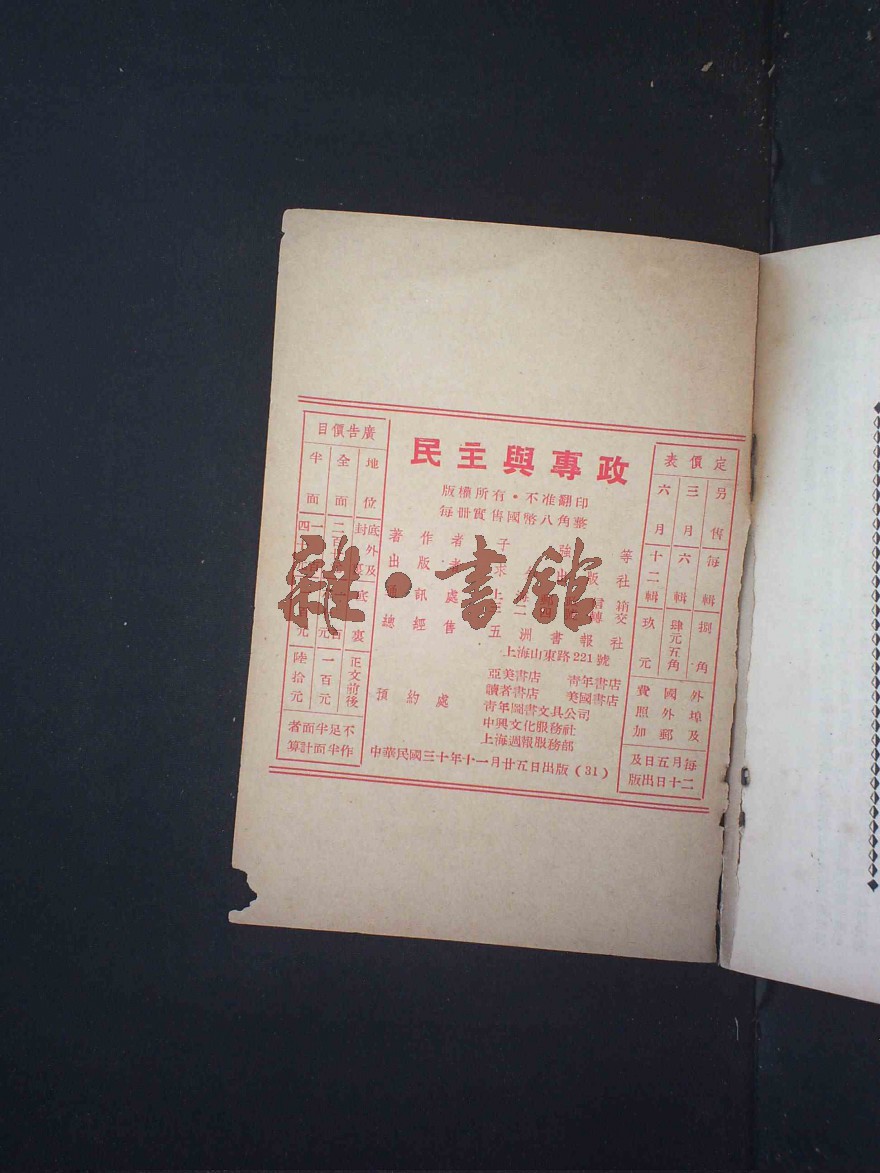 民主與專政
版權所有・不准翻印
每冊實售國幣八角整
著作者 子強等
出版者 求 出版社
通訊處 上 信箱
二四 轉交
總經售 五洲書報社
上海山東路221號
預約處
亞美書店 青年書店
讀者書店 美國書店
青年圖書文具公司
中興文化服務社
上海週報服務部
中華民國三十年十一月廿五日出版（31）
定價表
另售 每輯 捌角
三月 六輯 肆元五角
六月 十二輯 玖元
外埠及
國外郵
費照加
每月五日及
二十日出版
廣告價目
地位 底封外及 底裏 正文前後
全面 二百 一百元
半面 元 陸拾元
不足半面者
作半面計算
雜・書館